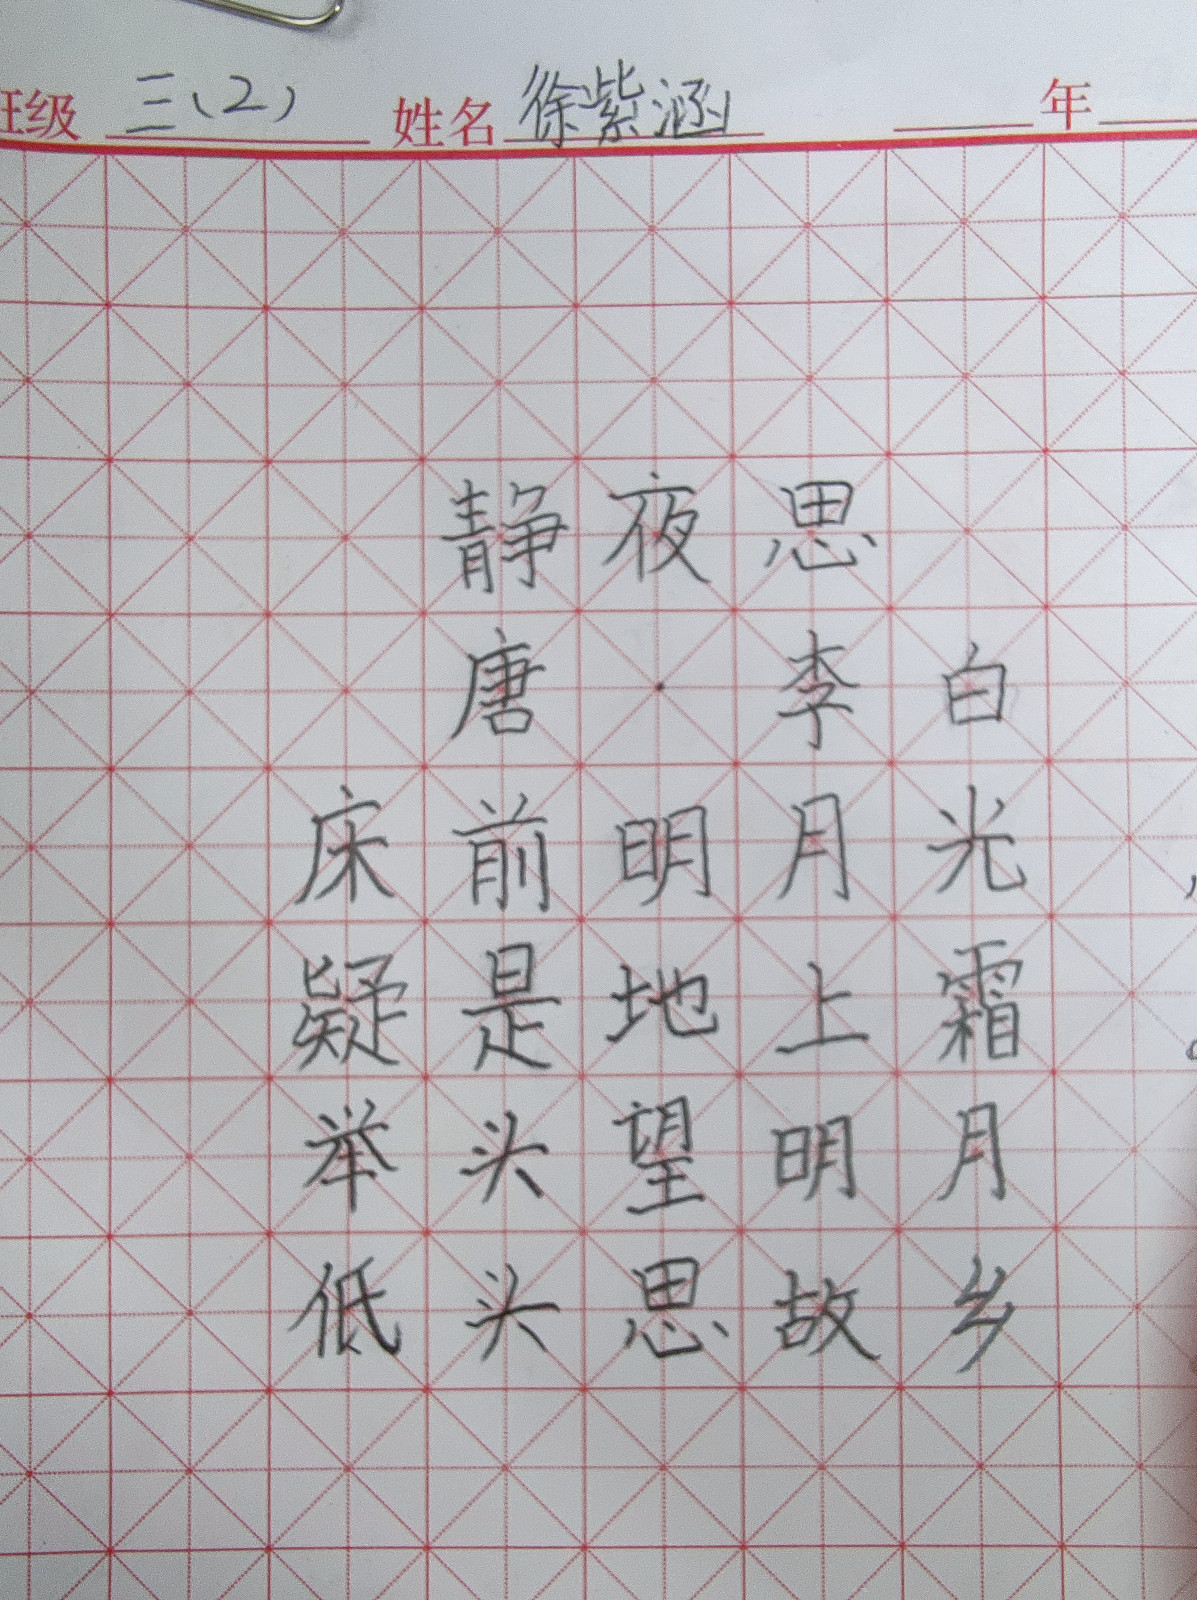 班级 三、(2) 姓名 徐紫涵 年
静夜思
唐·李白
床前明月光，
疑是地上霜。
举头望明月
低头思故乡